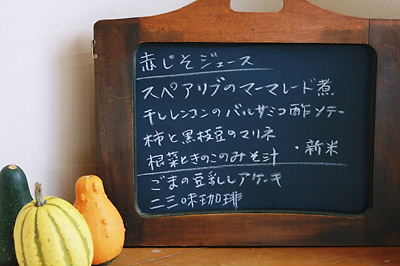 赤じそジュース
スペアリブのマーマレード煮
干しレンコンのバルサミコ酢ソテー
柿と黒枝豆のマリネ
根菜ときのこのみそ汁 ・新米
ごまの豆乳レアケーキ
二三味珈琲